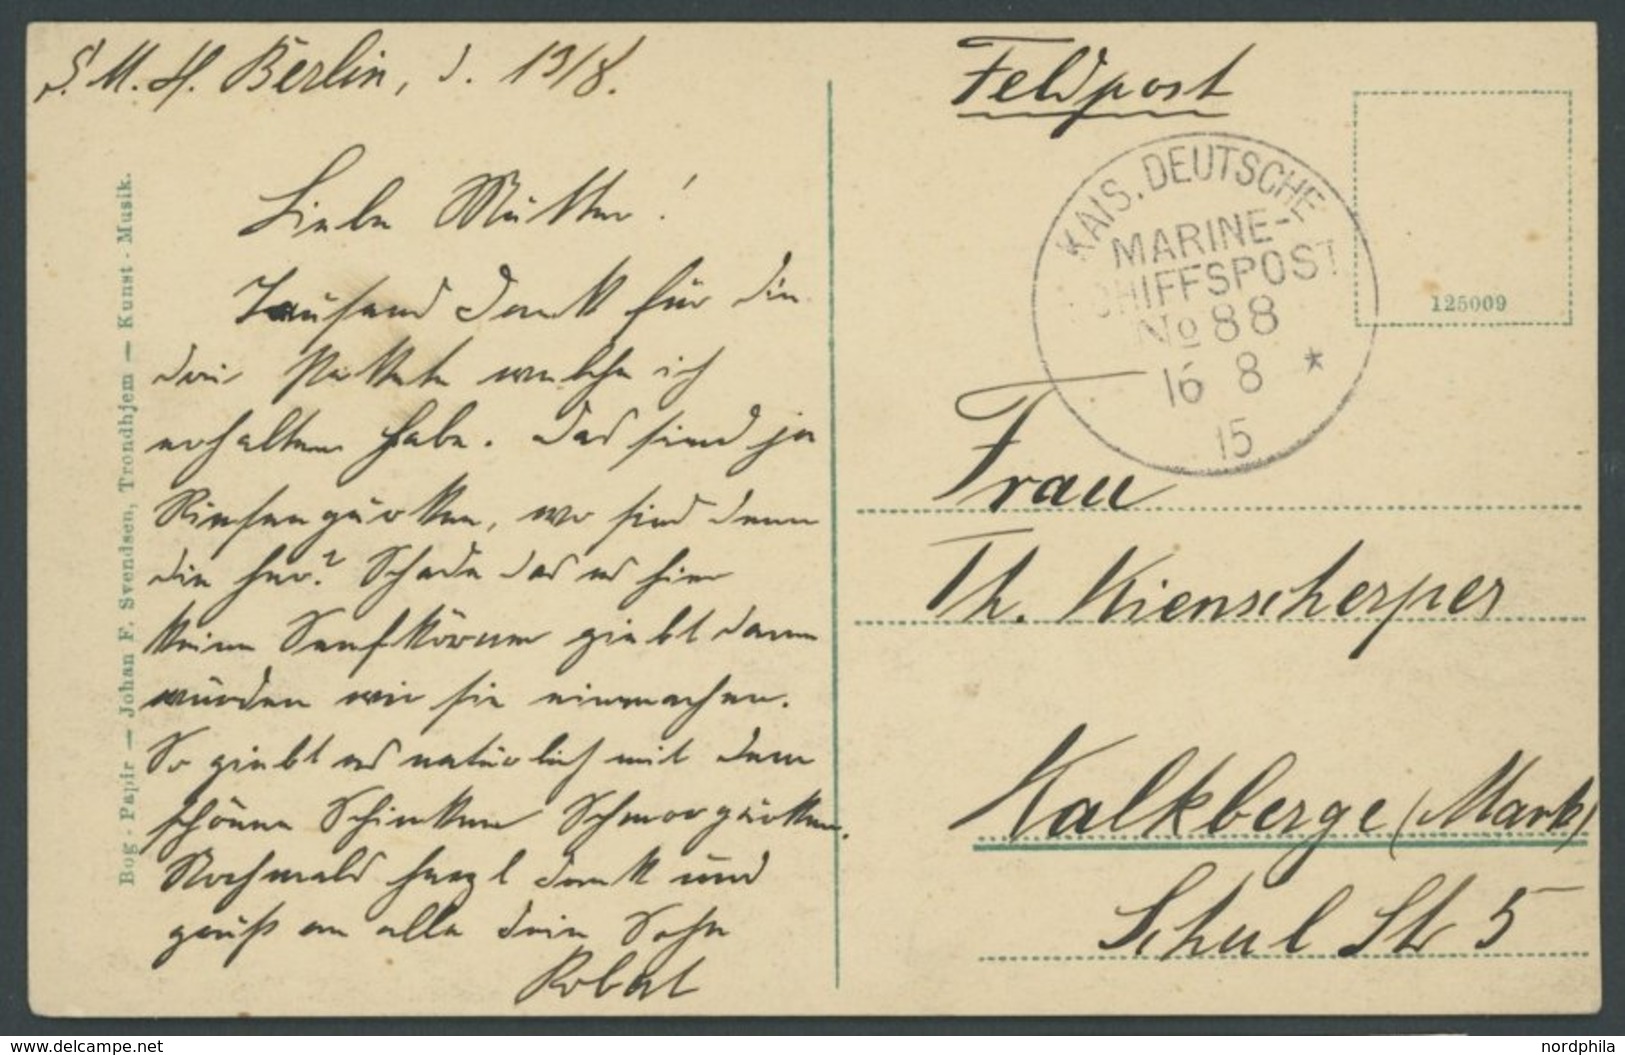 S.M.S. Berlin, d. 13/8.
Liebe Mutter!
Tausend Dank für die
drei Pakete welche ich
erhalten habe. Das sind ja
Riesengurken, wo sind denn
die her? Schade das es hier
keine Senfkörner giebt dann
würden wir sie einmachen.
So giebt es natürlich mit dem
schönen Schinken Schmorgurken.
Nochmals herzl Dank und
gruß an alle dein Sohn
Robert
Bog - Papir — Johan F. Svendsen, Trondhjem — Kunst - Musik.
Feldpost
KAIS. DEUTSCHE
MARINE-
SCHIFFSPOST
No 88
16 8 *
15
125009
Frau
Th. Kienscherper
Kalkberge (Mark)
Schul Str 5
www.delcampe.net
nordphila